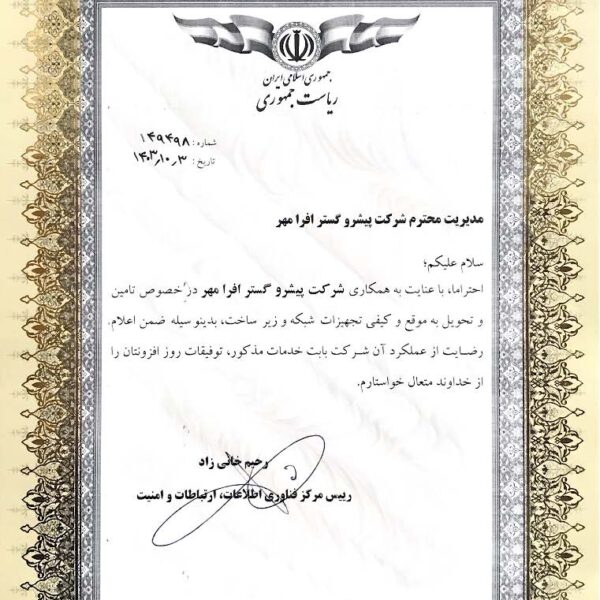 جمهوری اسلامی ایران
ریاست جمهوری
شماره: ۱۴۹۴۹۸
تاریخ: ۱۴۰۳٫۱۰٫۳
مدیریت محترم شرکت پیشرو گستر افرا مهر
سلام علیکم؛
احتراما، با عنایت به همکاری شرکت پیشرو گستر افرا مهر در خصوص تامین
و تحویل به موقع و کیفی تجهیزات شبکه و زیر ساخت، بدینو سیله ضمن اعلام
رضایت از عملکرد آن شرکت بابت خدمات مذکور، توفیقات روز افزونتان را
از خداوند متعال خواستارم.
رحیم خانی زاد
رییس مرکز فناوری اطلاعات، ارتباطات و امنیت